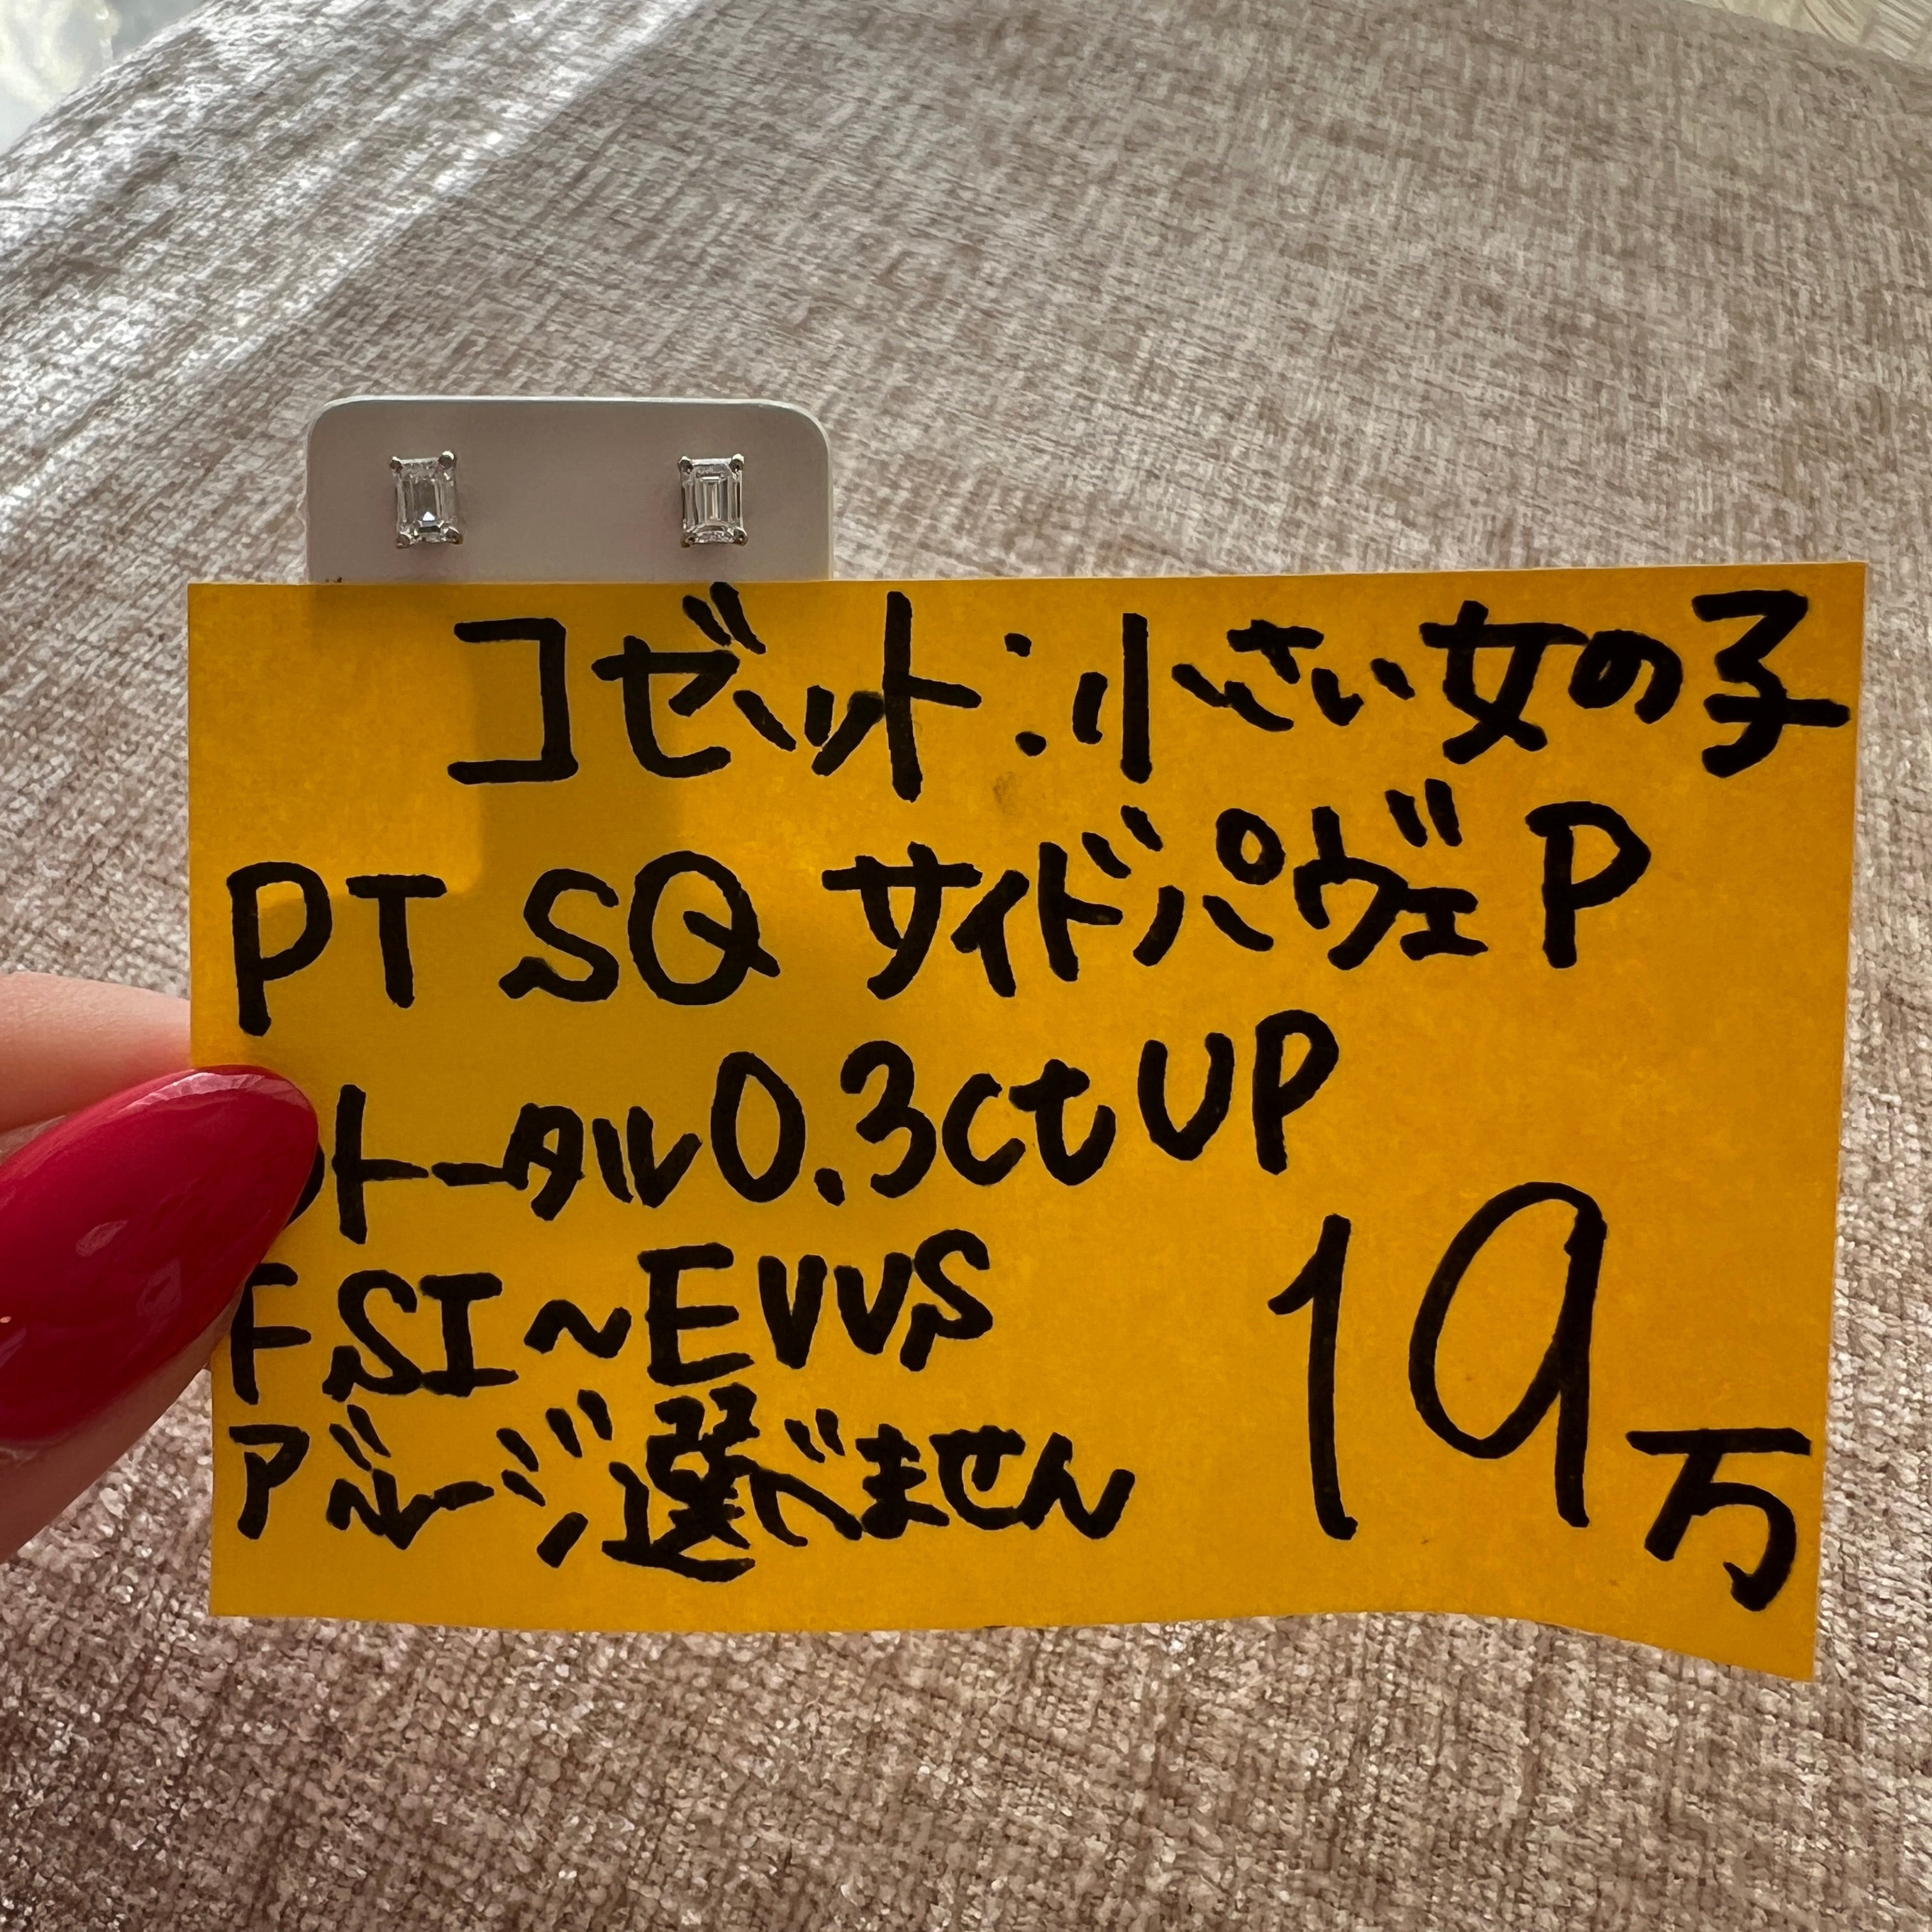 コゼット:小さい女の子
PT SQ サイドパヴェ P
トータル0.3ct UP
F SI~E VVS
アベレージ 選べません
19万